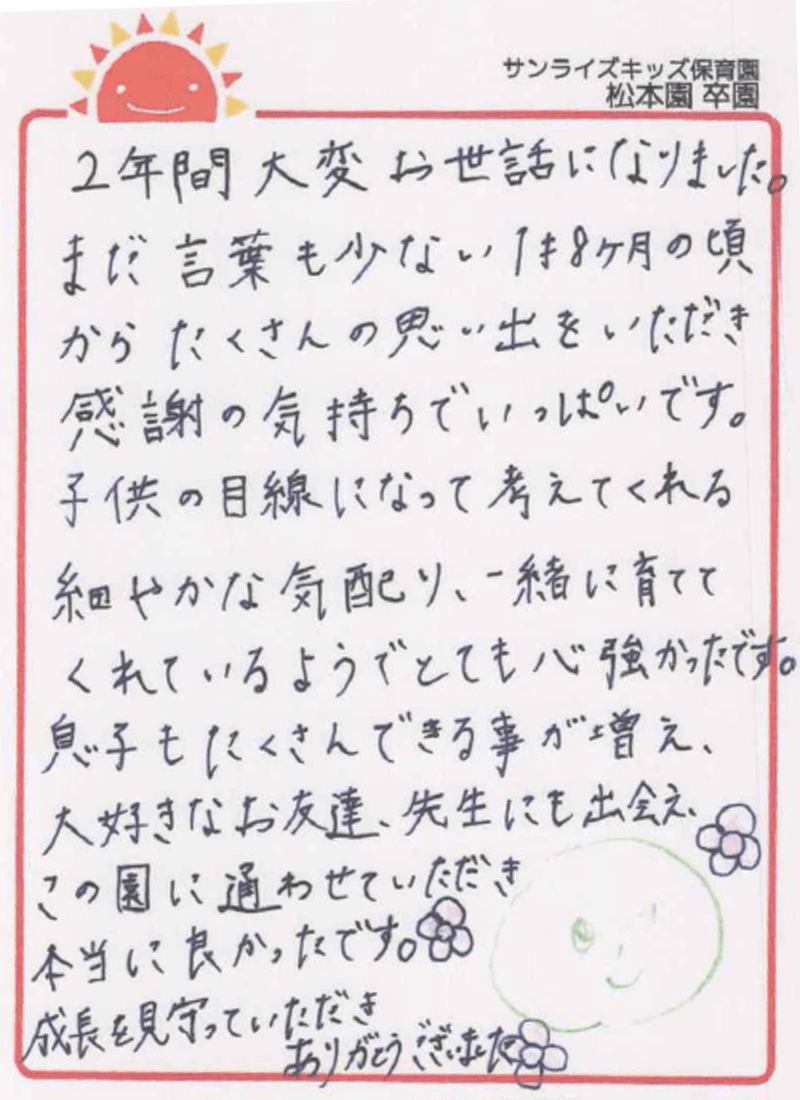 サンライズキッズ保育園
松本園 卒園
2年間 大変 お世話になりました。
まだ 言葉も少ない 1才8ヶ月の頃
から たくさんの思い出をいただき
感謝の気持ちでいっぱいです。
子供の目線になって考えてくれる
細やかな気配り、一緒に育てて
くれているようでとても心強かったです。
息子もたくさんできる事が増え、
大好きなお友達、先生にも出会え、
この園に通わせていただき
本当に良かったです。
成長を見守っていただき
ありがとうございました